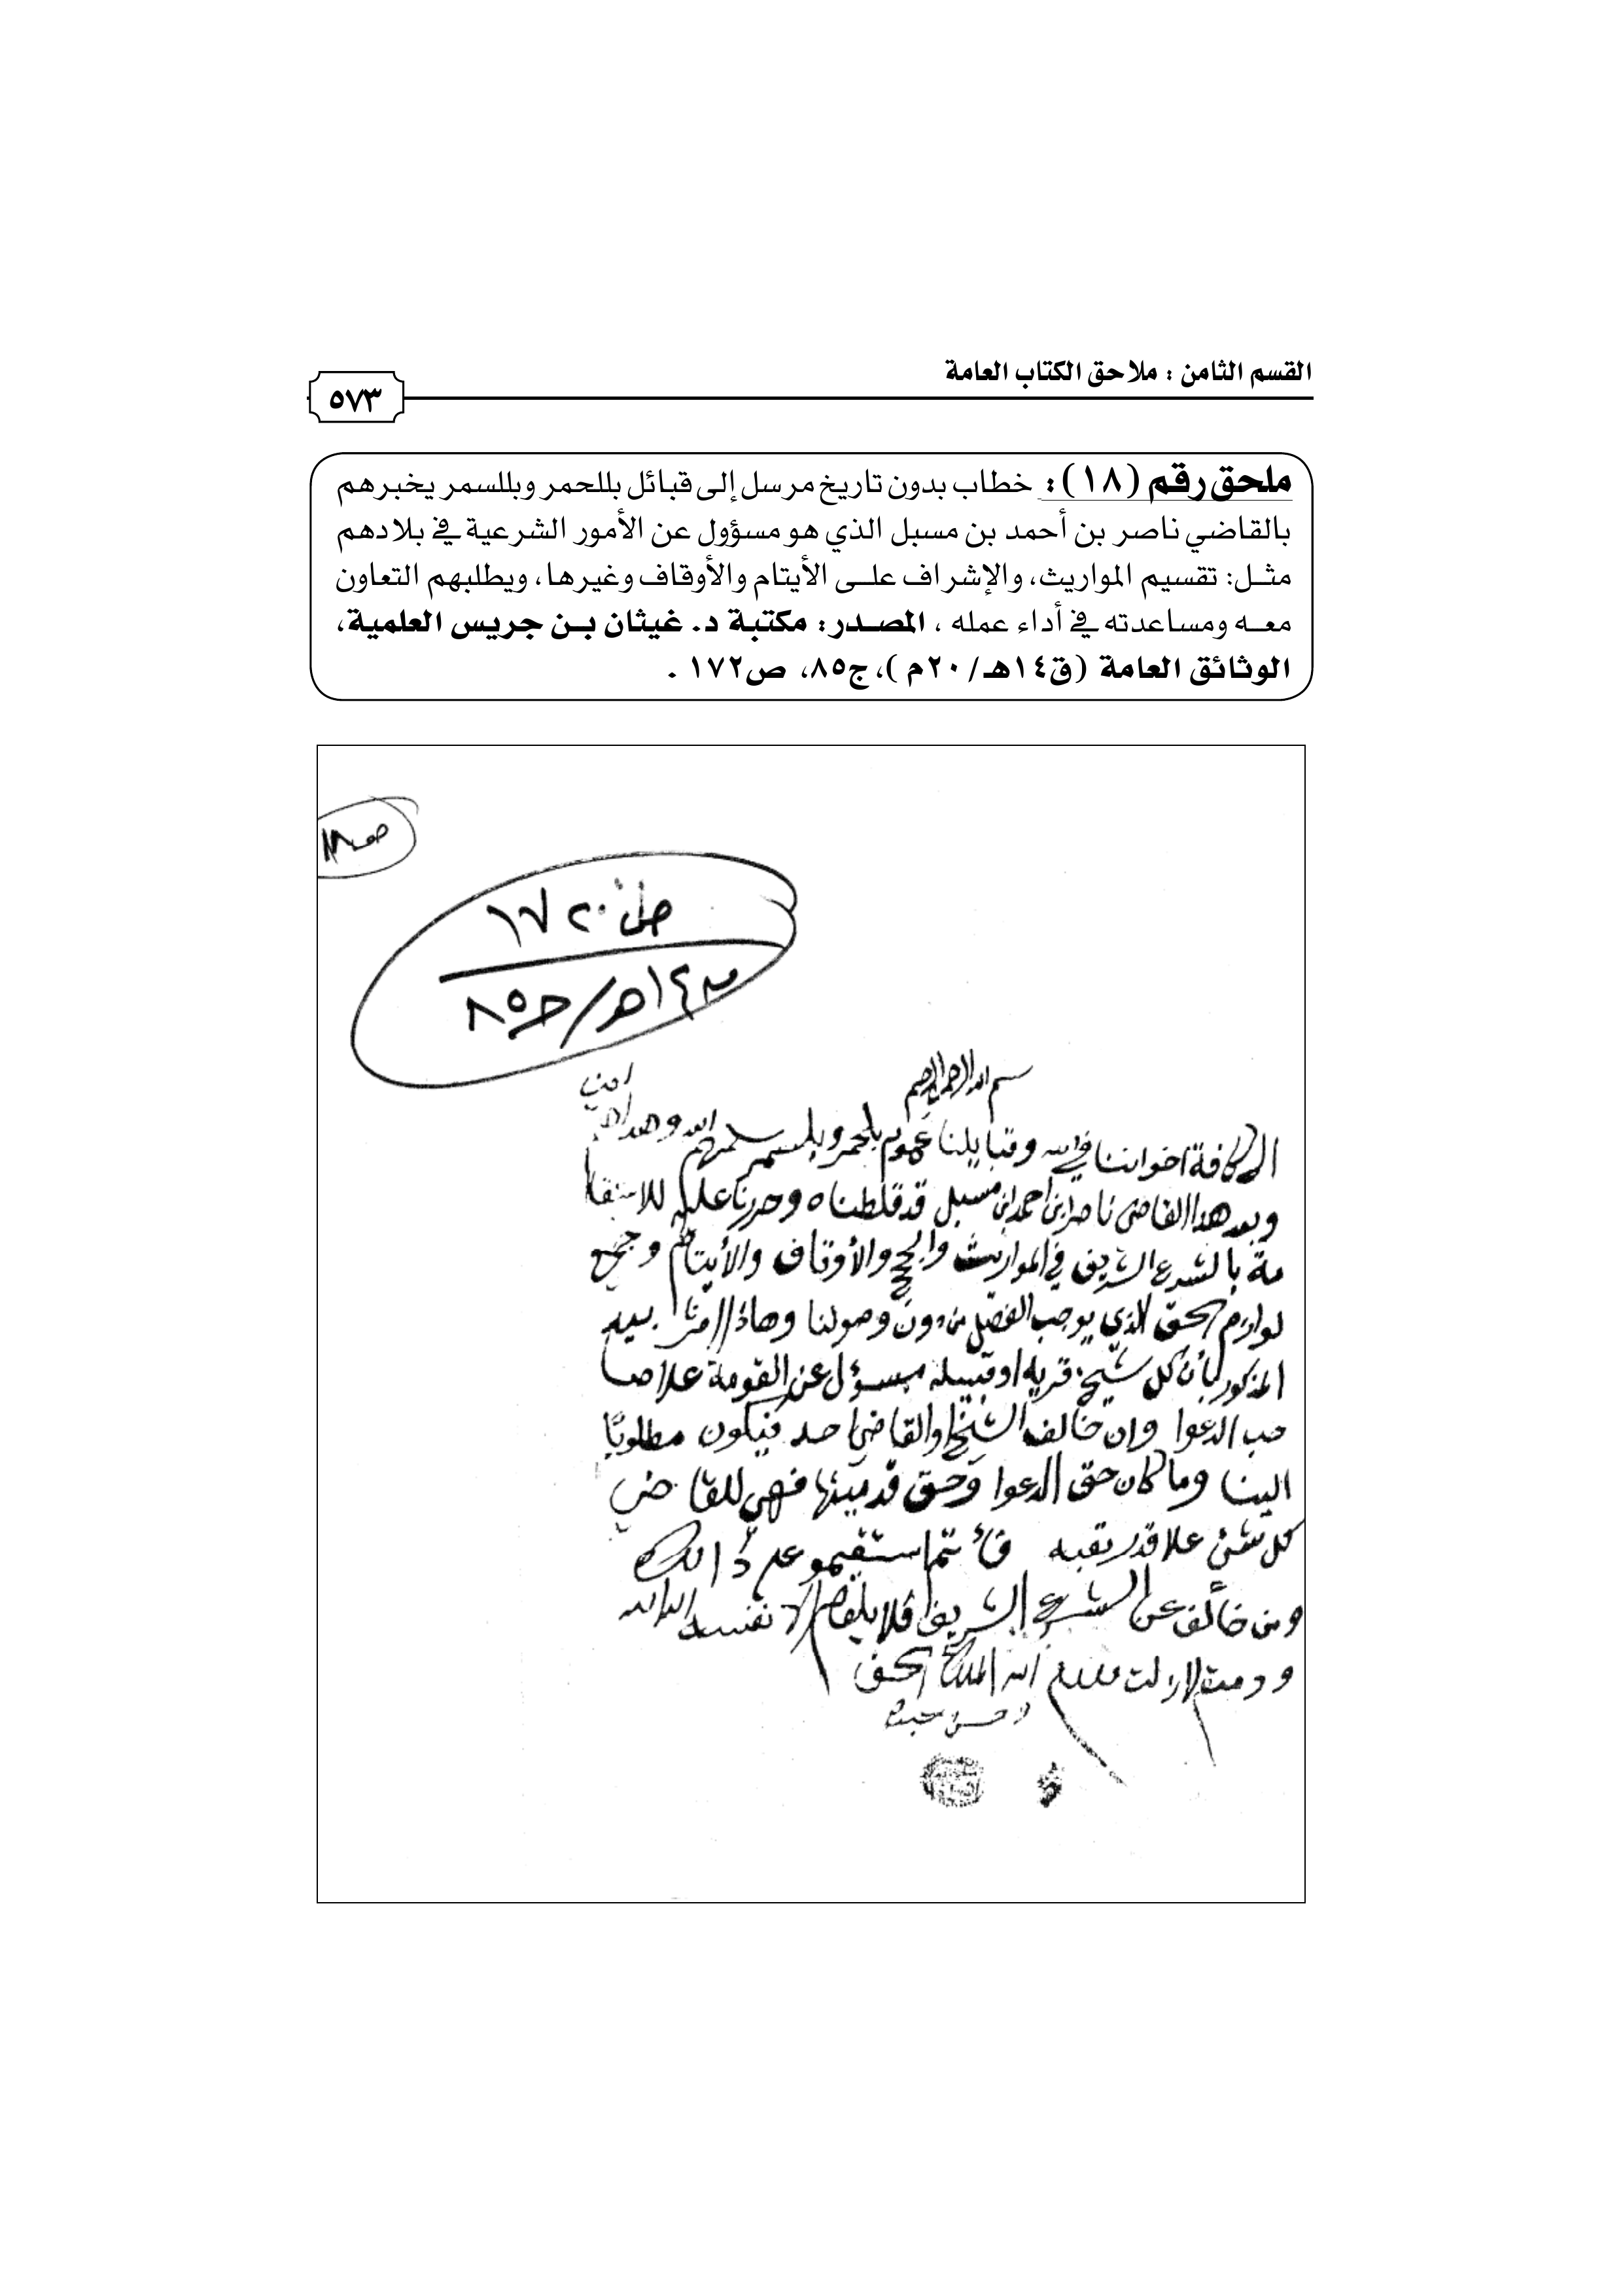 القسم الثامن : ملاحق الكتاب العامة
٥٧٣
ملحق رقم (١٨): خطاب بدون تاريخ مرسل إلى قبائل بللحمر وبللسمر يخبرهم
بالقاضي ناصر بن أحمد بن مسبل الذي هو مسؤول عن الأمور الشرعية في بلادهم
مثل: تقسيم المواريث، والإشراف على الأيتام والأوقاف وغيرها، ويطلبهم التعاون
معه ومساعدته في أداء عمله ، المصدر: مكتبة د. غيثان بن جريس العلمية،
الوثائق العامة (ق١٤هـ/٢٠م )، ج٨٥، ص١٧٢ .
ص ١٧٢
١٤هـ/ج٨٥
بسم الله الرحمن الرحيم
الى كافة اخواننا في الله وقبايلنا عموم بلحمر وبلسمر سلمهم الله وهداهم امين
وبعد هذا القاضي ناصر ابن احمد ابن مسبل قد قلطناه وحررنا عليه للاستقا
مة بالشرع الشريف في المواريث والحجج والأوقاف والأيتام وجميع
لوازم الحق الذي يوجب الفصل من دون وصولنا وهاذا امرنا بيد
المذكور بأن كل شيخ قريه او قبيله مسؤل عن القومة علا صا
حب الدعوا وان خالف الشيخ او القاضي احد فيكون مطلوبًا
الينا وما كان حق الدعوا وحق قدميتها فهي للقاضي
كل شئ علا قدر تقبه فأنتم استقيمو على ذالك
ومن خالف عن الشرع الشريف فلا يلقا م الا نفسه
ودمتم لازلت الله الملك الحق